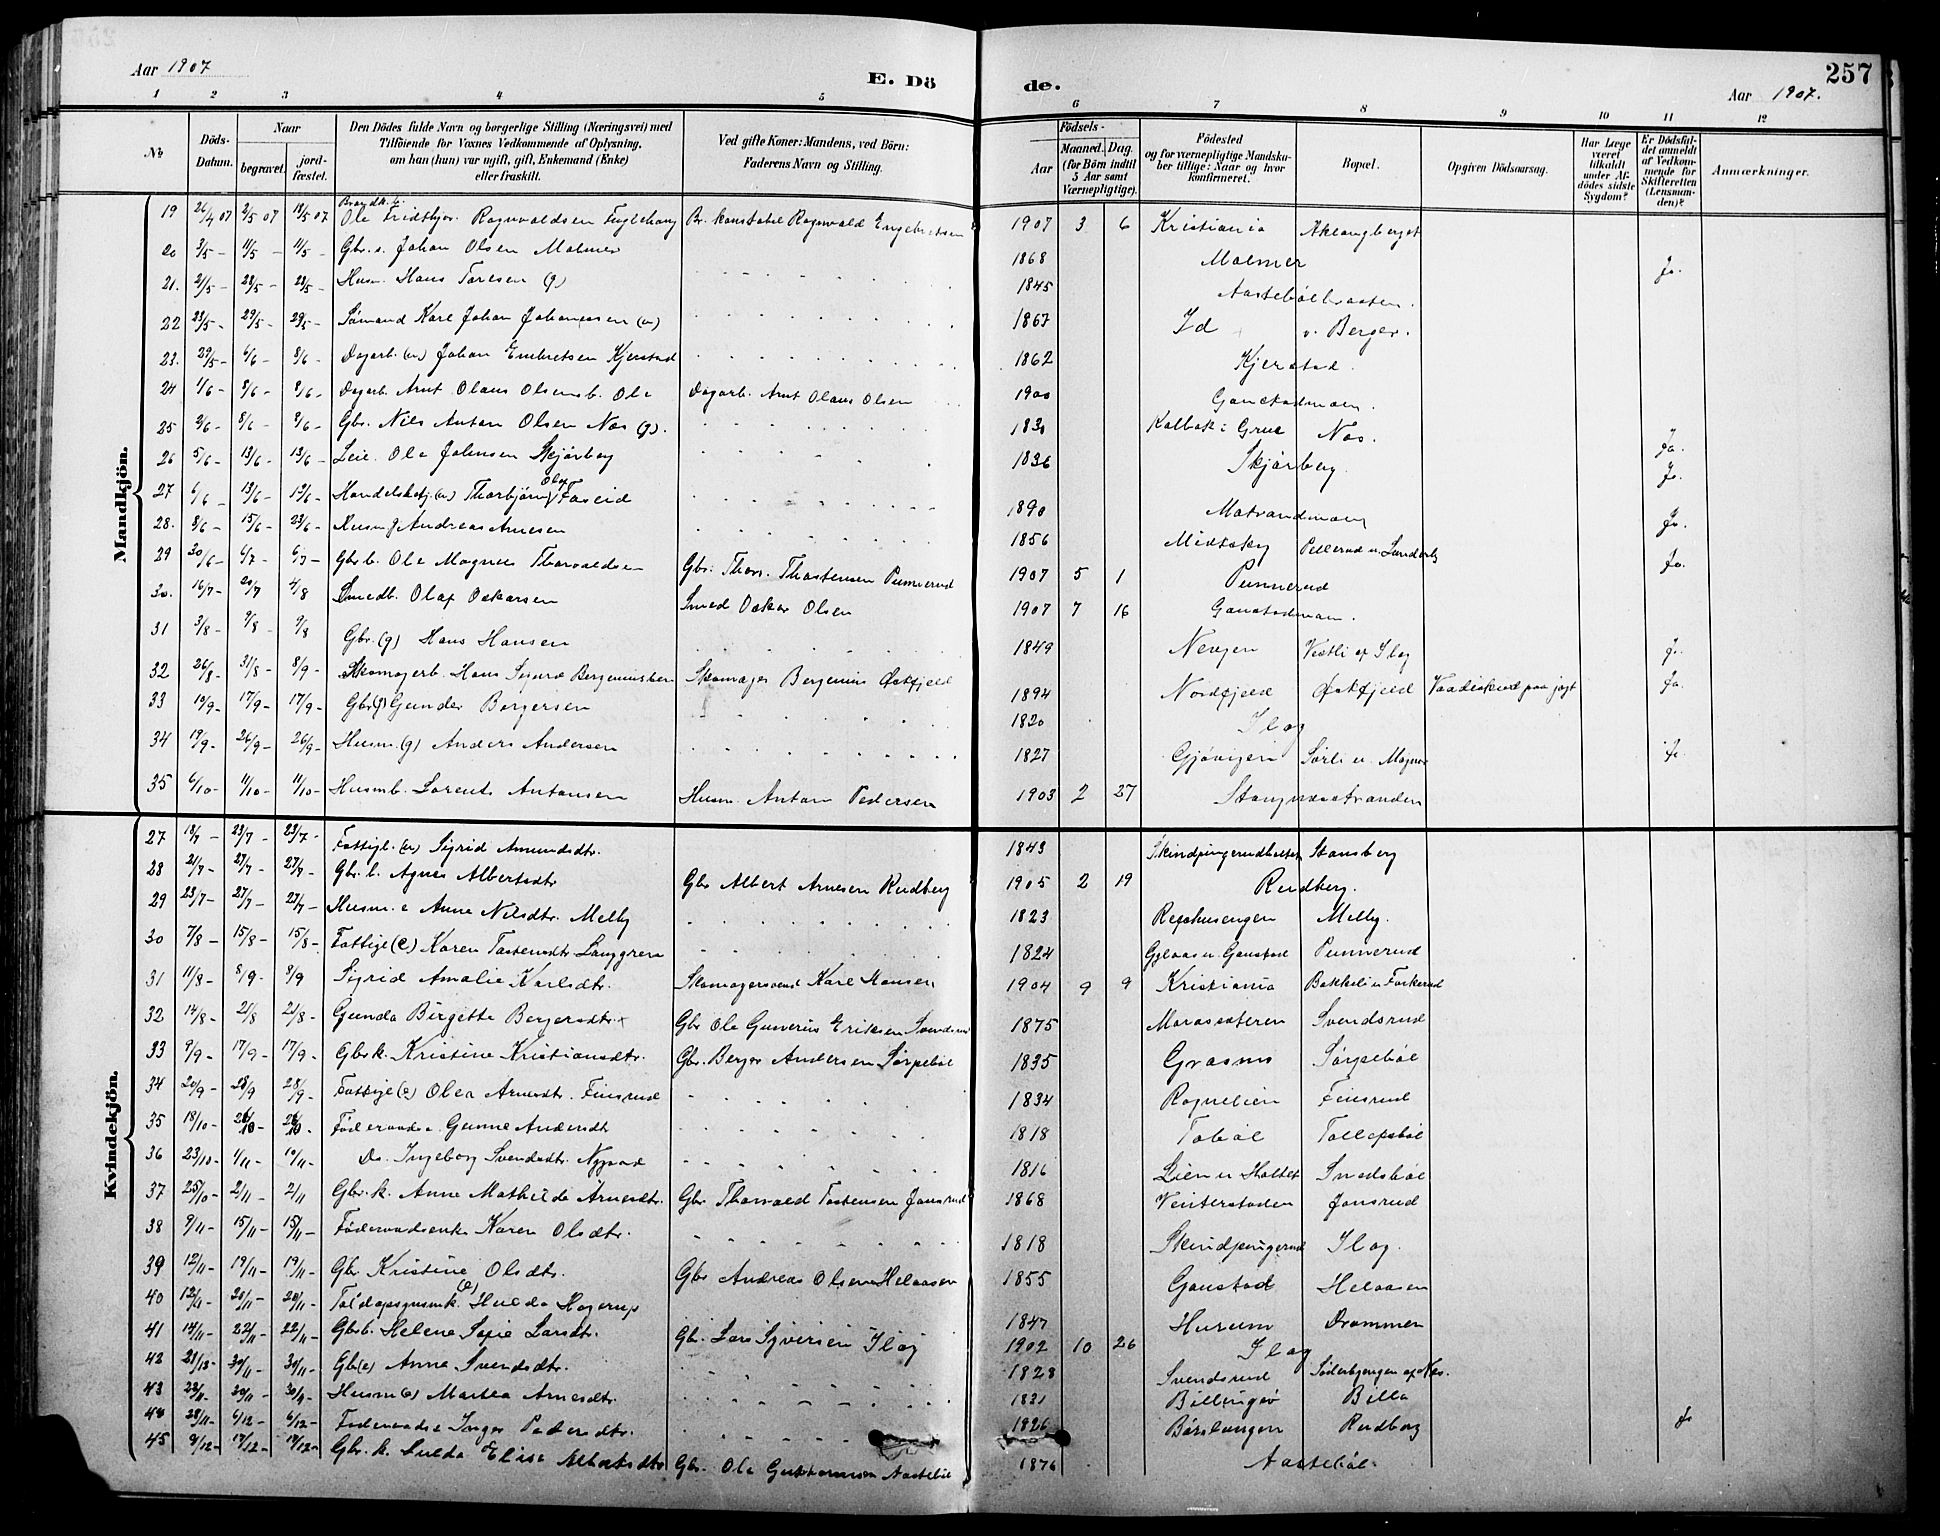 Aar 1907
E. Dö
de.
257
Aar 1907.
1 2 3 4 5 6 7 8 9 10 11 12
No
Döds-Datum.
Naar
begravet.
jord-fæstet.
Den Dödes fulde Navn og borgerlige Stilling (Næringsvei) med
Tilföiende for Voxnes Vedkommende af Oplysning,
om han (hun) var ugift, gift, Enkemand (Enke)
eller fraskilt.
Ved gifte Koner: Mandens, ved Börn:
Faderens Navn og Stilling.
Födsels-
Aar
Maaned. Dag.
(for Börn indtil
5 Aar samt
Værnepligtige).
Födested
og for værnepligtige Mandska-
ber tillige: Naar og hvor
konfirmeret.
Bopæl.
Opgiven Dödsaarsag.
Har Læge
været
tilkaldt
under Af-
dödes sidste
Sygdom?
Er Dödsfal-
det anmeldt
af Vedkom-
mende for
Skifteretten
(Lensman-
den)?
Anmærkninger.
Mandkjön.
19 26/4 07 2/5 07 19/5 07 Ole Fridthjor Ragnvaldsen Fuglehaug Br. konstabel Ragnvald Engebretsen 1907 3 6 Kristiania Aklangberget
20 3/5 - 11/5 - 11/5 - Gbr. s. Johan Olsen Malmer 1868 Malmer Ja.
21. 21/5 - 28/5 - 28/5 - Husm. Hans Toresen (g) 1845 Aastebölbraaten.
22 23/5 - 29/5 - 29/5 - Sömand Karl Johan Johannssen (u) 1867 Id v. Berger.
23. 29/5 - 6/6 - 8/6 - Dagarb. (u) Johan Embretsen Kjerstad 1862 Kjerstad.
24 1/6 - 8/6 - 8/6 - Dagarb. Arnt Olaus Olsens b. Ole Dagarb. Arnt Olaus Olsen 1900 Ganstadmoen.
25 2/6 - 8/6 - 8/6 - Gbr. Nils Anton Olsen Nos (g). 1830 Kalbak i Grue Nos. Ja.
26 5/6 - 13/6 - 13/6 - Leie. Ole Johnsen Skjörberg 1836 Skjörberg. Ja.
27 6/6 13/6 - 19/6 - Handelsbetj. (u) Thorbjörn Olaf Foseid 1890 Matrandmoen Ja.
28. 8/6 - 15/6 - 23/6 - Husm g Andreas Arnesen 1856 Midtsky Pellerud u. Sanderby Ja.
29 30/6 - 6/7 - 6/7 - Gbr b. Ole Magnus Thorvaldsen Gbr. Thorv. Thostensen Punnerud 1907 5 1 Punnerud
30. 16/7 - 20/7 4/8 Smedb. Olaf Oskarsen Smed Oskar Olsen 1907 7 16 Ganstadmoen.
31 3/8 - 9/8 - 9/8 Gbr. (g) Hans Hansen 1849 Nevjen Vestli af Ilag Ja.
32 26/8 - 31/8 - 8/9 - Skomagerb. Hans Sigurd Bergeniussen Skomager Bergenius Östfjeld 1894 Nordfjeld Östfjeld Vaadeskud paa jagt Ja.
33 10/9 - 17/9 - 17/9 - Gbr (g) Gunder Borgersen 1820 Ilag
34 19/9 - 26/9 - 26/9 - Husm. (g) Anders Andersen 1827 Gjövigen Sörli u. Magnor Ja.
35 6/10 - 11/10 - 11/10 - Husmb. Lorents Antonsen Husm. Anton Pedersen 1903 2 27 Stangnesstranden
Kvindekjön.
27 18/7 - 23/7 - 23/7 - Fattigl. (u) Sigrid Amundsdtr. 1843 Skindpungerudholtet Stansberg
28 21/7 - 27/7 - 27/7 - Gbr. b. Agnes Albertsdtr Gbr Albert Arnesen Rudberg 1905 2 19 Rudberg.
29 23/7 - 27/7 - 27/7 - Husm. e Anne Nilsdtr. Melby 1823 Rexhusengen Melby.
30 7/8 - 15/8 - 15/8 - Fattigl (e) Karen Tostensdtr Langgren 1824 Ganstad Punnerud
31 11/8 - 8/9 - 8/9 Sigrid Amalie Karlsdtr. Skomagersvend Karl Hansen 1904 9 9 Kristiania Bakkeli u Faskerud
32 14/8 - 21/8 21/8 - Gunda Birgitte Bergersdtr. Gbr Ole Gunerius Eriksen Svendsrud 1875 Morassæteren Svendsrud
33 9/9 - 17/9 - 17/9 - Gbr k. Kristine Kristiansdtr. Gbr. Berger Andersen Sörpeböl 1835 Grasmo Sörpeböl
34 20/9 - 28/9 28/9 - Fattigl (e) Olea Arnesdtr. Finsrud 1834 Rognelien Finsrud
35 18/10 - 26/10 - 26/10. Föderaads e. Gunne Andersdt 1818 Toböl Tollefsböl
36 23/10 - 4/11 - 10/11 - Do. Ingeborg Svendsdtr. Nygaard 1816 Lien u Holtet Snedsböl
37 25/10 - 2/11 - 2/11 Gbr. k. Anne Mathilde Arnesdtr. Gbr. Thorvald Tostensen Jonsrud 1868 Vinterstaden Jonsrud
38 9/11 - 15/11 - 15/11 - Föderaadsenke Karen Olsdtr. 1818 Skindpungerud Ilag.
39 12/11 - 19/11 - 19/11 - Gbr Kristine Olsdtr. Gbr Andreas Olsen Helaasen 1855 Ganstad Helaasen
40 12/11 - 20/11 - 20/11 - Toldopsynsmk. (e) Hulda Hagerup 1847 Hurum Drammen
41 14/11 - 22/11 - 22/11 - Gbrb. Helene Sofie Larsdtr. Gbr. Lars Syversen Ilag 1902 10 26 Ilag
42 30/11 - 30/11 - Gb (e) Anne Svendsdtr. 1828 Svendsrud Söderbyengen af Nes.
43 30/11 - 30/11 - Husm (e) Martea Arnesdtr. 1831 Billingsö Billa
44 28/11 - 6/12 - 6/12 - Föderaadse Inger Pedersdtr. 1826 Börslangen Rudberg Ja
45 9/12 - 17/12 - 17/12 - Gbr. k. Hulda Elise Albertsdtr Gbr. Ole Guttormsen Aasteböl 1876 Aasteböl.